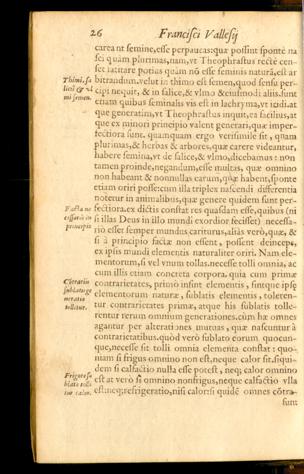 26 Francisci Vallesij
careant semine, esse perpaucas: quæ possint sponte na
sci quàm plurimas, nam, vt Theophrastus rectè cen-
set latitare potius quàm nō esse seminis naturā, est ar
bitrandum. velut in thimo est semen, quod sensu per-
cipi nequit, & in salice, & vlmo & eiusmodi alijs. sunt
etiam quibus seminalis vis est in lachryma, vt
que generatim, vt Theophrastus inquit, ea facilius, at
que ex minori principio valent generari, quæ imper-
fectiora sunt. quamquam ergo verisimile sit, quam
plurimas, & herbas & arbores, quæ carere videantur,
habere semina, vt de salice, & vlmo, dicebamus: non
tamen proinde, negandum, esse multas, quæ omnino
non habeant & nonnullas earum, quæ habent, sponte
etiam oriri posse: cum illa triplex nascendi differentia
notetur in animalibus, quæ genere quidem sunt per-
fectiora. ex dictis constat res quasdam esse, quibus (ni
si illas Deus in illo mundi exordio fecisset) necessa-
riò esset semper mundus cariturus, aliàs verò, quæ, &
si à principio factæ non essent, possent deinceps,
ex ipsis mundi elementis naturaliter oriri. Nam ele-
mentorum, si vel vnum tollas. necesse tolli omnia, ac
cum illis etiam concreta corpora. quia cum primæ
contrarietates, primò insint elementis, sintque ipsę
elementorum naturæ, sublatis elementis, tolleren-
tur contrarietates primæ, atque his sublatis tolle-
rentur rerum omnium generationes. cùm hæ omnes
agantur per alterationes mutuas, quæ nascuntur à
contrarietatibus. quòd verò sublato eorum quocun-
que, necesse sit tolli omnia elementa constat: quo-
niam si frigus omnino non est, neque calor sit. siqui-
dem si calfactio nulla esse potest, neq; calor omnino
est at verò si omnino non frigus, neque calfactio vlla
est: neq; refrigeratio, nisi calor: si quidē omnes cōtra-
sunt
Thimi, sa
lici & vl
mi semen.
Facta ne
cessariò in
principio
Cōtrariis
sublatis ge
neratio
tollitur.
Frigore su
blato tolli
tur calor.